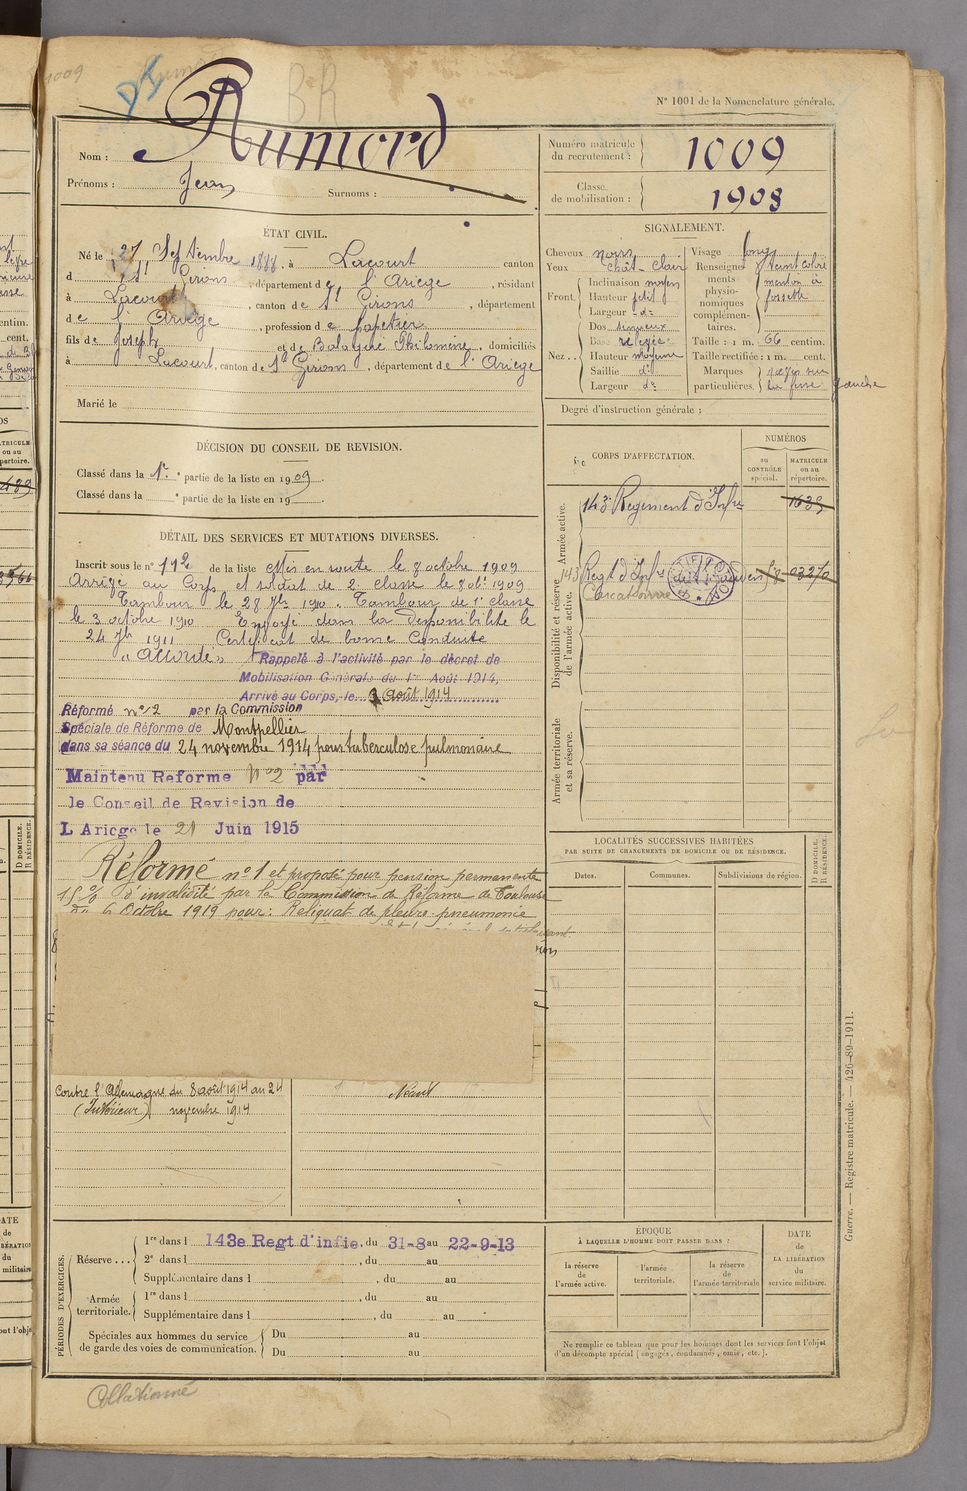 1009
BR
N° 1001 de la Nomenclature générale.
Nom : Rumord
Prénoms : Jean Surnoms :
Numéro matricule du recrutement : 1009
Classe de mobilisation : 1908
ÉTAT CIVIL.
Né le 27 Septembre 1888, à Lacourt canton
d St Girons, département de l'Ariège, résidant
à Lacourt, canton de St Girons, département
de l'Ariège, profession de papetier
fils de Joseph et de Balagué Philomène, domiciliés
à Lacourt, canton de St Girons, département de l'Ariège
Marié le
SIGNALEMENT.
Cheveux noirs
Yeux chât-clair
Front. Inclinaison moyen
Hauteur petit
Largeur do
Nez... Dos sinueux
Base relevée
Hauteur moyenne
Saillie do
Largeur do
Visage long
Renseignements physionomiques complémentaires. teint coloré
menton à
fossette
Taille : 1 m. 66 centim.
Taille rectifiée : 1 m. cent.
Marques particulières. sur
la fesse gauche
Degré d'instruction générale :
DÉCISION DU CONSEIL DE REVISION.
Classé dans la 1re partie de la liste en 1909.
Classé dans la e partie de la liste en 19
DÉTAIL DES SERVICES ET MUTATIONS DIVERSES.
Inscrit sous le n° 112 de la liste Mis en route le 8 octobre 1909
Arrivé au Corps et soldat de 2e classe le 8 obre 1909
Tambour le 28 7bre 1910. Tambour de 1e classe
le 3 octobre 1910 Envoyé dans la disponibilité le
24 7bre 1911 Certificat de bonne conduite
"Accordé" Rappelé à l'activité par le décret de
Mobilisation Générale du 1er Août 1914,
Arrivé au Corps, le 3 août 1914
Réformé n° 2 par la Commission
Spéciale de Réforme de Montpellier
dans sa séance du 24 novembre 1914 pour tuberculose pulmonaire
Maintenu Reforme n° 2 par
le Conseil de Revision de
L Ariege le 21 Juin 1915
Réformé n° 1 et proposé pour pension permanente
15 % d'invalidité par la Commission de Réforme de Toulouse
du 6 Octobre 1919 pour : Reliquat de pleuro pneumonie
Contre l'Allemagne du 8 août 1914 au 24
(Intérieur) novembre 1914
Néant
CORPS D'AFFECTATION.
NUMÉROS
au CONTRÔLE spécial.
MATRICULE ou au répertoire.
Armée active.
143e Régiment d'Infie 1635
Disponibilité et réserve de l'armée active.
143 Regt d'Infie
Carcassonne
Armée territoriale et sa réserve.
LOCALITÉS SUCCESSIVES HABITÉES
PAR SUITE DE CHANGEMENTS DE DOMICILE OU DE RÉSIDENCE.
Dates. Communes. Subdivisions de région. D DOMICILE. R RÉSIDENCE.
PÉRIODES D'EXERCICES.
Réserve... 1re dans l 143e Regt d'infie, du 31-8 au 22-9-13
2e dans l , du au
Supplémentaire dans l , du au
Armée territoriale. 1re dans l , du au
Supplémentaire dans l , du au
Spéciales aux hommes du service de garde des voies de communication. Du au
Du au
ÉPOQUE
À LAQUELLE L'HOMME DOIT PASSER DANS :
la réserve de l'armée active.
l'armée territoriale.
la réserve de l'armée territoriale
DATE de LA LIBÉRATION du service militaire.
Ne remplir ce tableau que pour les hommes dont les services font l'objet
d'un décompte spécial (engagés, condamnés, omis, etc.).
Guerre. — Registre matricule. — 426-89-1911.
Collationné